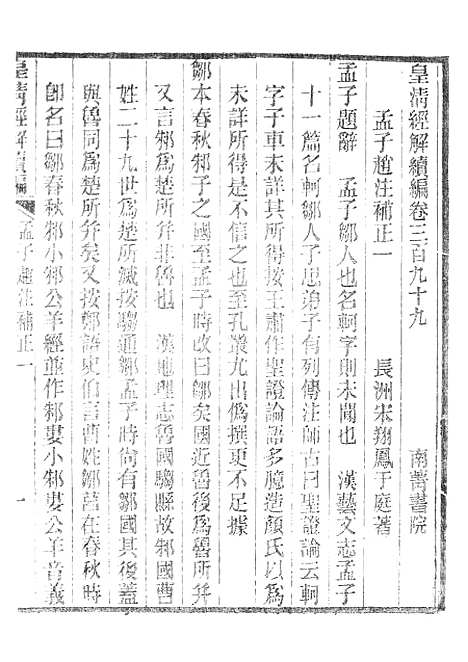 皇清經解續編卷三百九十九　南菁書院
孟子趙注補正一　長洲宋翔鳳于庭著
孟子題辭　孟子鄒人也名軻字則未聞也　漢藝文志孟子
十一篇名軻鄒人子思弟子有列傳注師古曰聖證論云軻
字子車未詳其所得按王肅作聖證論語多臆造顏氏以爲
未詳所得是不信之也至孔叢尤出僞撰更不足據
鄒本春秋邾子之國至孟子時改曰鄒矣國近魯後爲魯所幷
又言邾爲楚所幷非魯也　漢地理志魯國騶縣故邾國曹
姓二十九世爲楚所滅按騶通鄒孟子時尙有鄒國其後蓋
與魯同爲楚所幷矣又按鄭語史伯言曹姓鄒莒在春秋時
卽名曰鄒春秋邾小邾公羊經並作邾婁小邾婁公羊音義
皇清經解續編　孟子趙注補正一　一